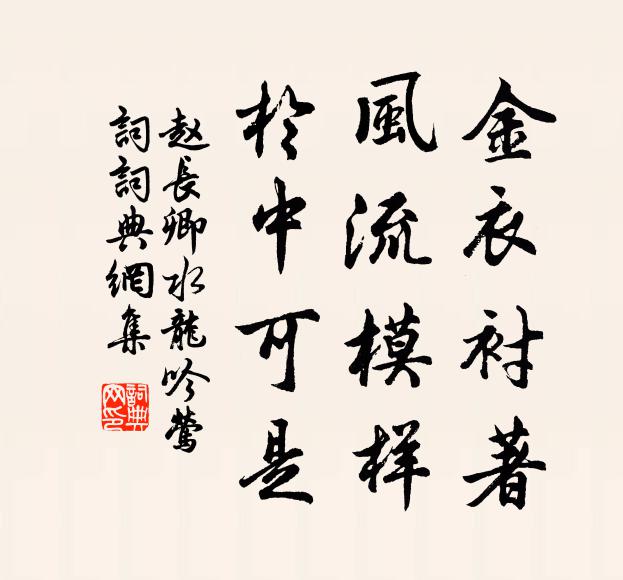 金衣衬著
風流模样
於中可是
赵長卿水龍吟莺
詞詞典網集
詞典网印